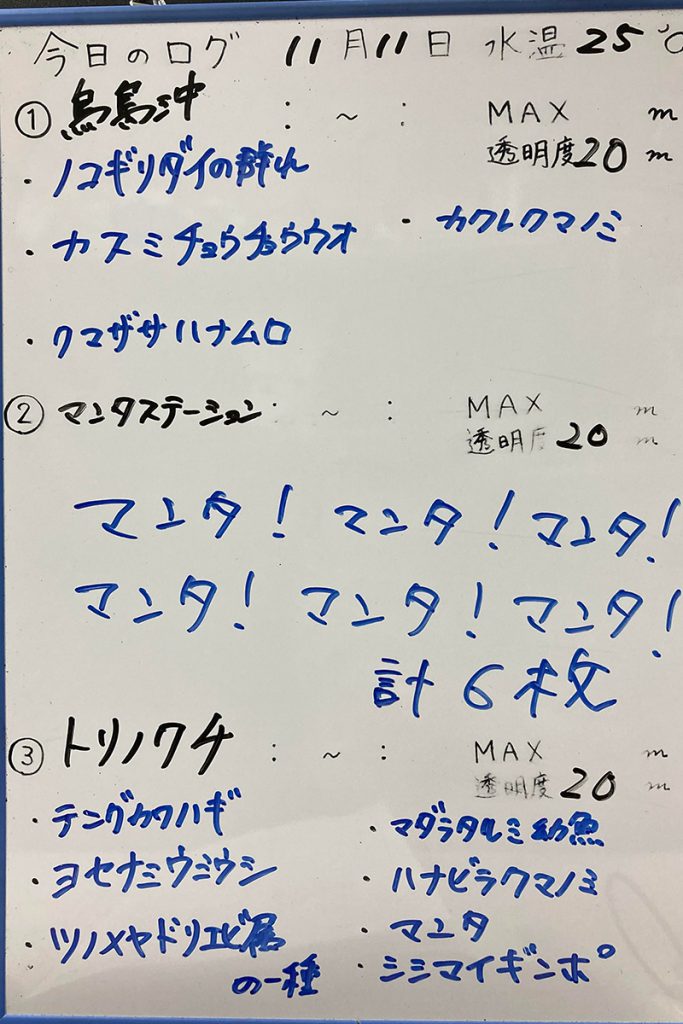 今日のログ 11月11日 水温25℃
① 烏島沖 : ~ : MAX m
透明度20m
・ノコギリダイの群れ
・カスミチョウチョウウオ ・カクレクマノミ
・クマザサハナムロ
② マンタステーション: ~ : MAX m
透明度20m
マンタ! マンタ! マンタ!
マンタ! マンタ! マンタ!
計6枚
③ トリノクチ : ~ : MAX m
透明度20m
・テングカワハギ ・マダラタルミ幼魚
・ヨセナミウミウシ ・ハナビラクマノミ
・ツノメヤドリエビ属 ・マンタ
の一種 ・シシマイギンポ